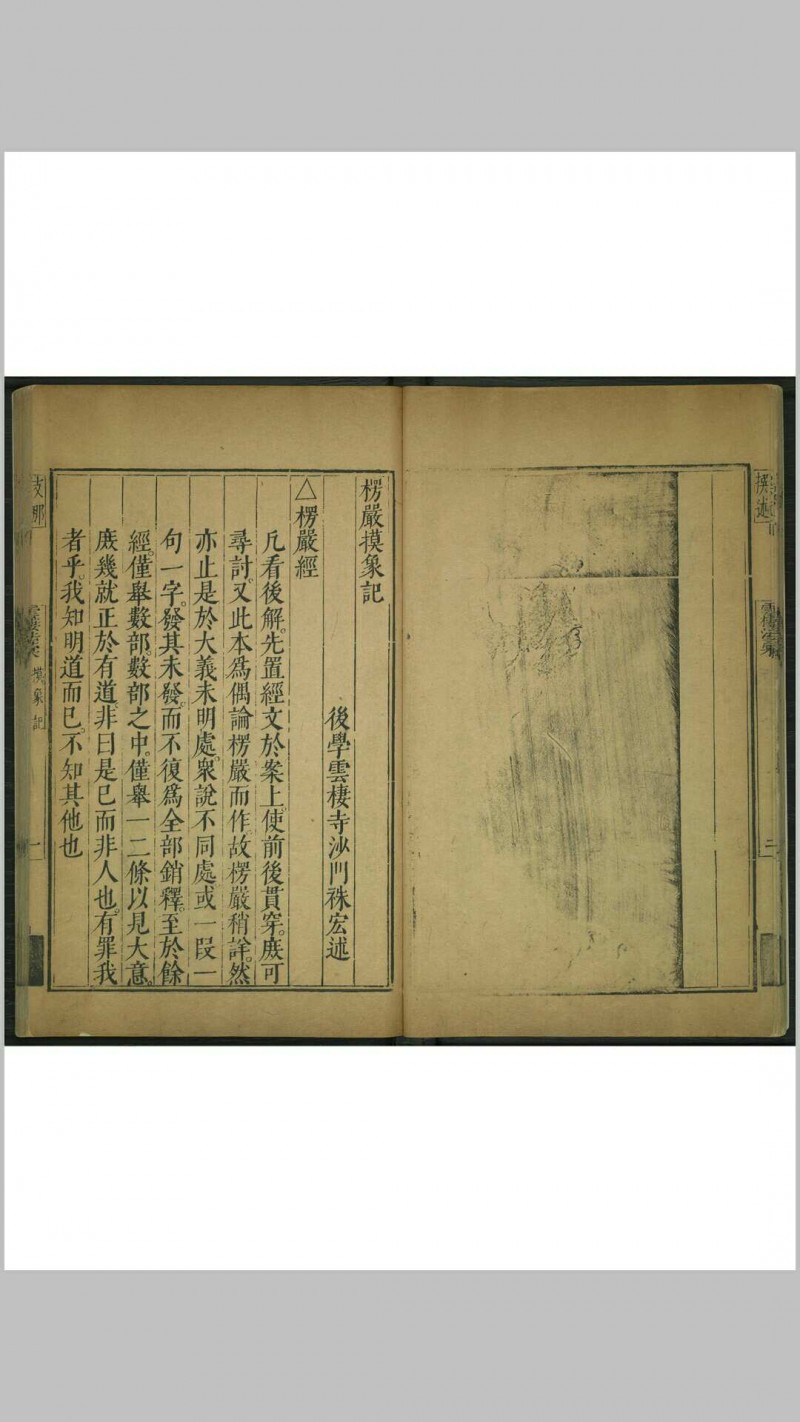 撰述
楞嚴摸象記
後學雲棲寺沙門袾宏述
△楞嚴經
凡看後解。先置經文於案上。使前後貫穿。庻可
尋討。又此本爲偶論楞嚴而作。故楞嚴稍詳。然
亦止是於大義未明處。衆說不同處。或一段一
句一字。發其未發。而不復爲全部銷釋。至於餘
經。僅舉數部。數部之中。僅舉一二條。以見大意。
庻幾就正於有道。非曰是已而非人也。有罪我
者乎。我知明道而已。不知其他也
支那
摸象記
一